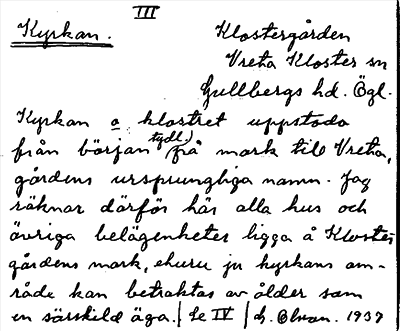 III
Kyrkan.
Klostergården
Vreta Kloster sn
Gullbergs hd. Ögl.
Kyrkan o klostret uppstodo
från början (tydl.) på mark till Vreta,
gårdens ursprungliga namn. Jag
räknar därför här alla hus och
övriga belägenheter ligga å Kloster-
gårdens mark, ehuru ju kyrkans om-
råde kan betraktas av ålder som
en särskild äga. Se IV
G. 1937